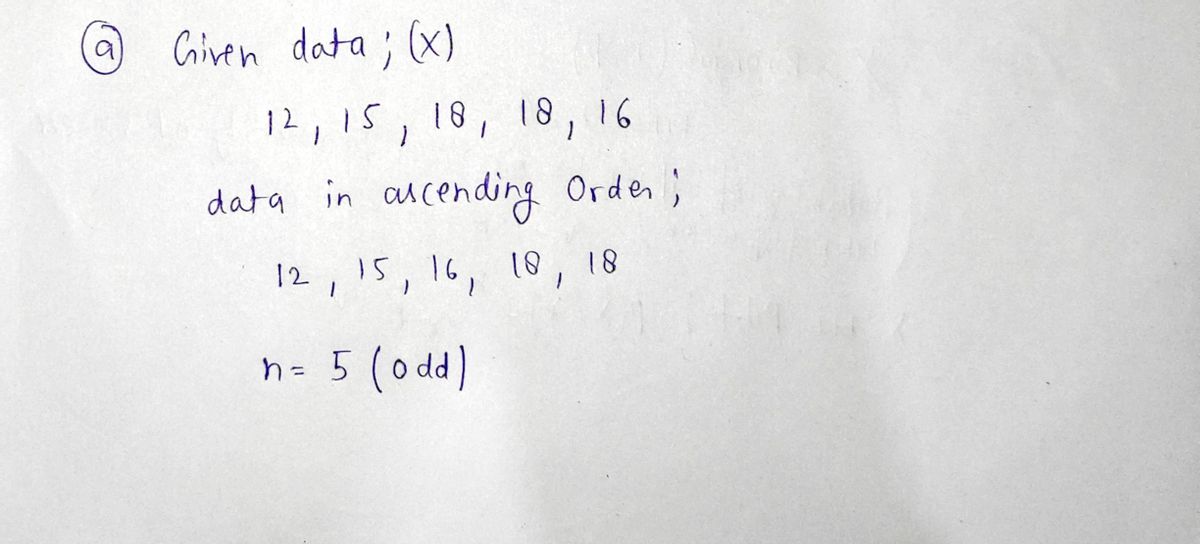 ⓐ Given data ; (x)
12, 15, 18, 18, 16
data in ascending Order ;
12, 15, 16, 18, 18
n = 5 (odd)